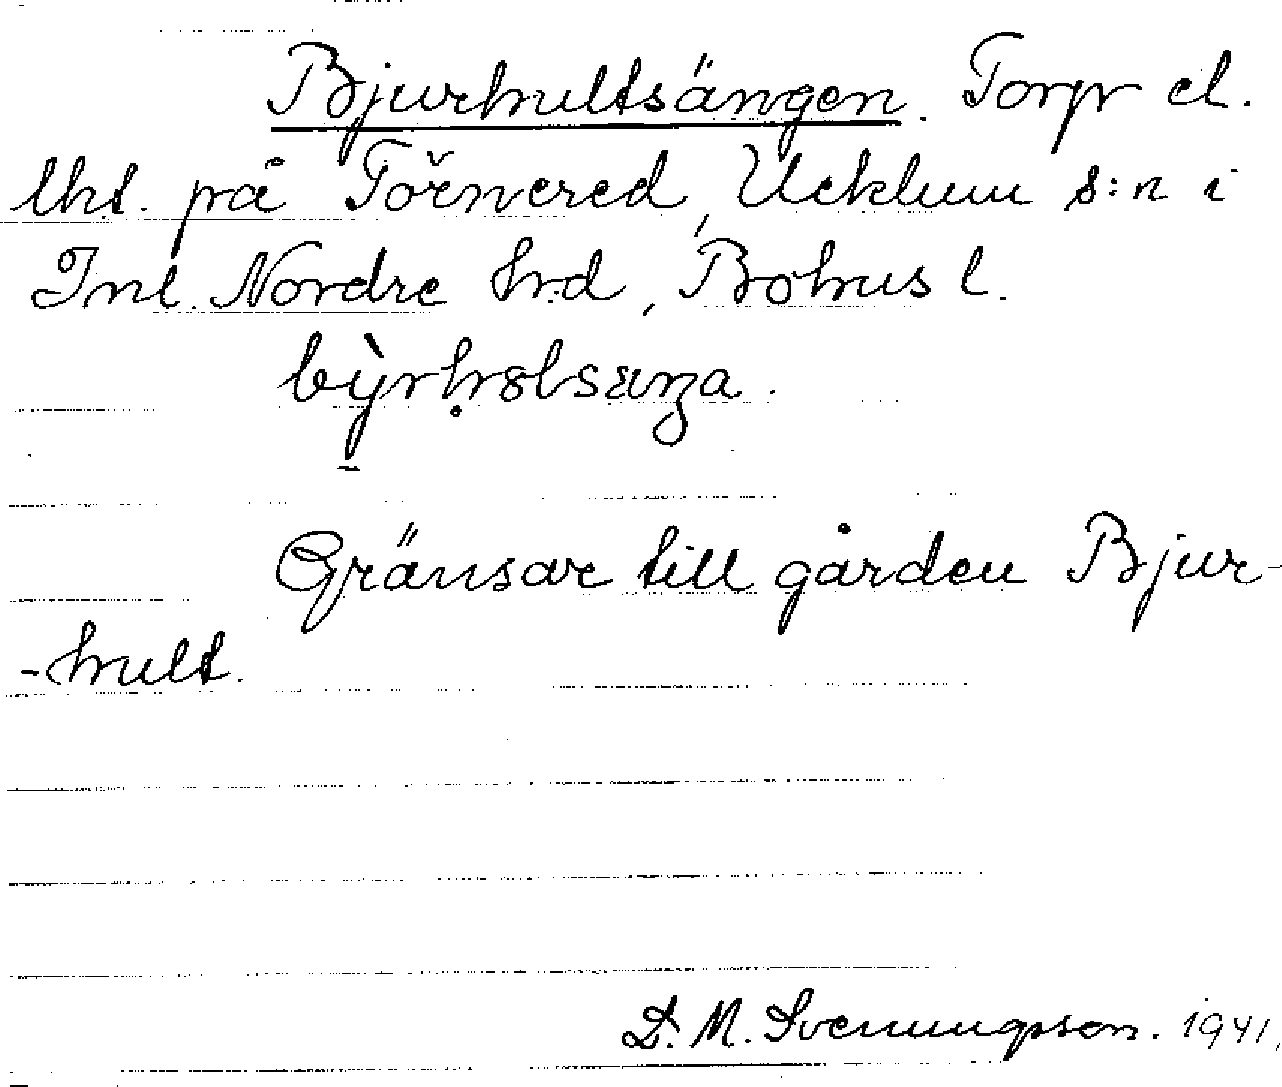 Bjurhultsängen. Torp el.
lht. på Törnered, Ucklum s:n i
Inl. Nordre hd, Bohus l.
bỳrḥolsæŋa.
Gränsar till gården Bjur-
-hult.
D. M. Svenungsson. 1941.